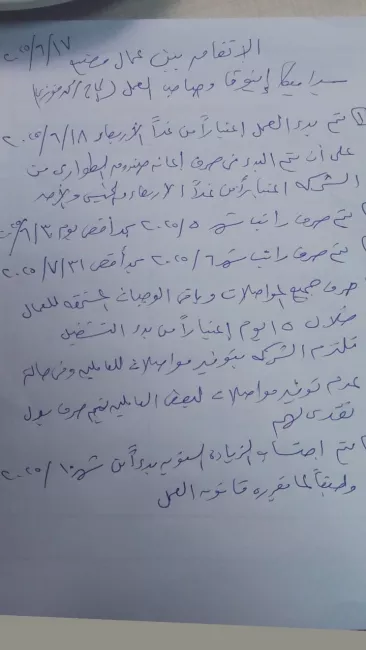 ٢٠٢٥/٦/١٧
الاتفاق بين عمال مصنع
سيراميكا إينوفا وصاحب العمل (الحاج / محمد فوزى)
① يتم بدء العمل إعتباراً من غداً الأربعاء ٢٠٢٥/٦/١٨
على أن يتم البدء فى صرف إعانة صندوق الطوارئ من
الشركة اعتباراً من غداً الأربعاء والخميس والأحد
يتم صرف راتب شهر ٢٠٢٥/٥ بحد أقصى يوم ٦/٣٠
يتم صرف راتب شهر ٢٠٢٥/٦ بحد أقصى ٢٠٢٥/٧/٣١
صرف جميع المواصلات وباقى الوجبات المستحقه للعمال
خلال ١٥ يوم إعتباراً من بدء التشغيل
تلتزم الشركة بتوفير مواصلات للعاملين وفى حالة
عدم توفير مواصلات لبعض العاملين يتم صرف بدل
نقدى لهم
يتم احتساب الزيادة السنوية بدءاً من شهر ٢٠٢٥/١٠
وطبقاً لما يقرره قانون العمل